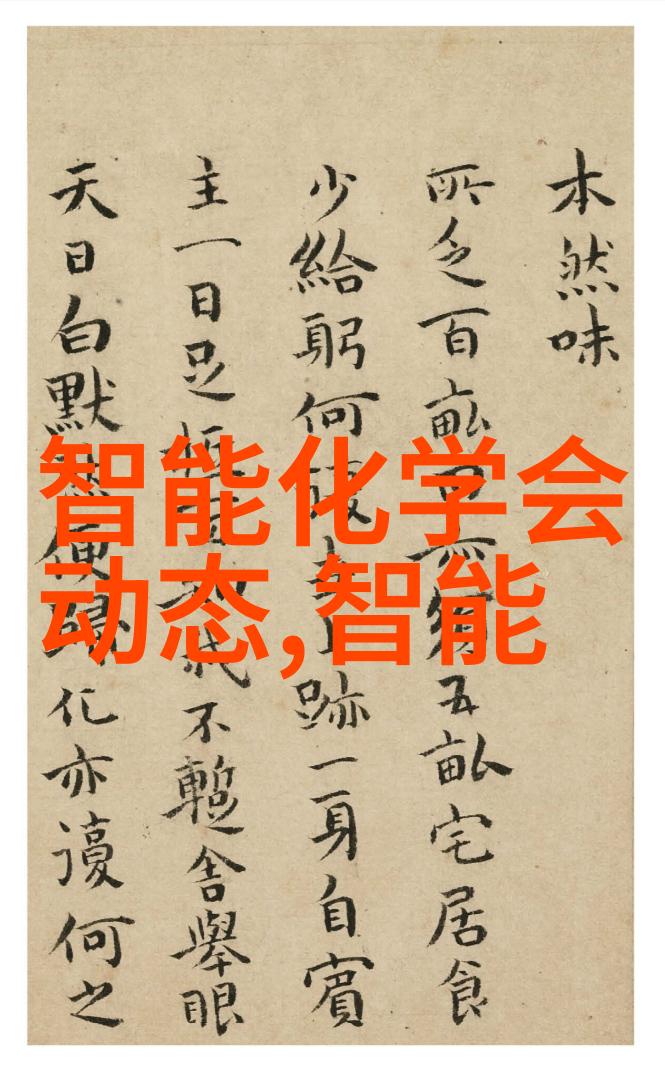 本然味
所乏百畝五畝宅居食
少給躬何跡一身自賓
主一日足不暫舍舉眼
天日白默化亦謾何之
智能化学会
动态,智能